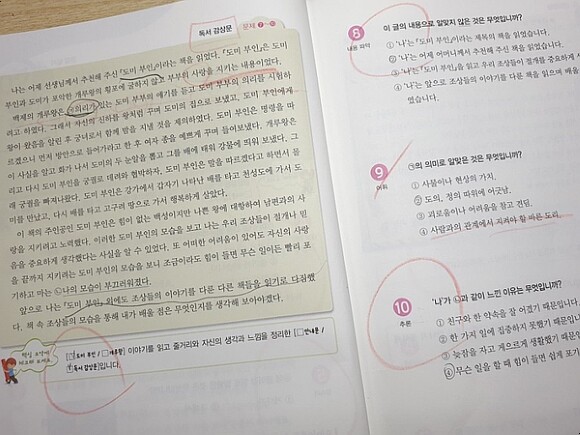 독서 감상문
문제 7~10
나는 어제 선생님께서 추천해 주신 『도미 부인』이라는 책을 읽었다. 『도미 부인』은 도미
부인과 도미가 포악한 개루왕의 횡포에 굴하지 않고 부부의 사랑을 지키는 내용이었다.
백제의 개루왕은 ㉠의리가 있는 도미 부부의 얘기를 듣고 도미 부부의 의리를 시험하
려고 하였다. 그래서 자신의 신하를 왕처럼 꾸며 도미의 집으로 보냈고, 도미 부인에게
왕이 왔음을 알린 후 궁녀로서 함께 밤을 지낼 것을 제의하였다. 도미 부인은 명령을 따
르겠으니 먼저 방안으로 들어가라고 한 후 여자 종을 예쁘게 꾸며 들여보냈다. 개루왕은
이 사실을 알고 화가 나서 도미의 두 눈알을 뽑고 그를 배에 태워 강물에 띄워 보냈다. 그
리고 다시 도미 부인을 궁궐로 데려와 협박하자, 도미 부인은 말을 따르겠다고 하면서 몰
래 궁궐을 빠져나왔다. 도미 부인은 강가에서 갑자기 나타난 배를 타고 천성도에 가서 도
미를 만났고, 다시 배를 타고 고구려 땅으로 가서 행복하게 살았다.
이 책의 주인공인 도미 부인은 힘이 없는 백성이지만 나쁜 왕에 대항하여 남편과의 사
랑을 지키려고 노력했다. 이러한 도미 부인의 모습을 보고 나는 우리 조상들이 절개나 믿
음을 중요하게 생각했다는 사실을 알 수 있었다. 또 어떠한 어려움이 있어도 자신의 사랑
을 끝까지 지키려는 도미 부인의 모습을 보니 조금이라도 힘이 들면 무슨 일이든 빨리 포
기하고 마는 ㉡나의 모습이 부끄러워졌다.
앞으로 나는 『도미 부인』 외에도 조상들의 이야기를 다룬 다른 책들을 읽기로 다짐했
다. 책 속 조상들의 모습을 통해 내가 배울 점은 무엇인지를 생각해 보아야겠다.
도미 부인 / 개루왕 이야기를 읽고 줄거리와 자신의 생각과 느낌을 정리한 안내문 /
독서 감상문입니다.
8 이 글의 내용으로 알맞지 않은 것은 무엇입니까?
내용 파악
① '나'는 『도미 부인』이라는 제목의 책을 읽었습니다.
② '나'는 어제 어머니께서 추천해 주신 책을 읽었습니다.
③ '나'는 『도미 부인』을 읽고 우리 조상들이 절개를 중요하게 시
④ '나'는 앞으로 조상들의 이야기를 다룬 책을 읽으며 배울
었습니다.
9 ㉠의 의미로 알맞은 것은 무엇입니까?
어휘
① 사물이나 현상의 가치.
② 도의, 정의 따위에 어긋남.
③ 괴로움이나 어려움을 참고 견딤.
④ 사람과의 관계에서 지켜야 할 바른 도리.
10 '나'가 ㉡과 같이 느낀 이유는 무엇입니까?
추론
① 친구와 한 약속을 잘 어겼기 때문입니다.
② 한 가지 일에 집중하지 못했기 때문입니
③ 늦잠을 자고 게으르게 생활했기 때문입
④ 무슨 일을 할 때 힘이 들면 쉽게 포기